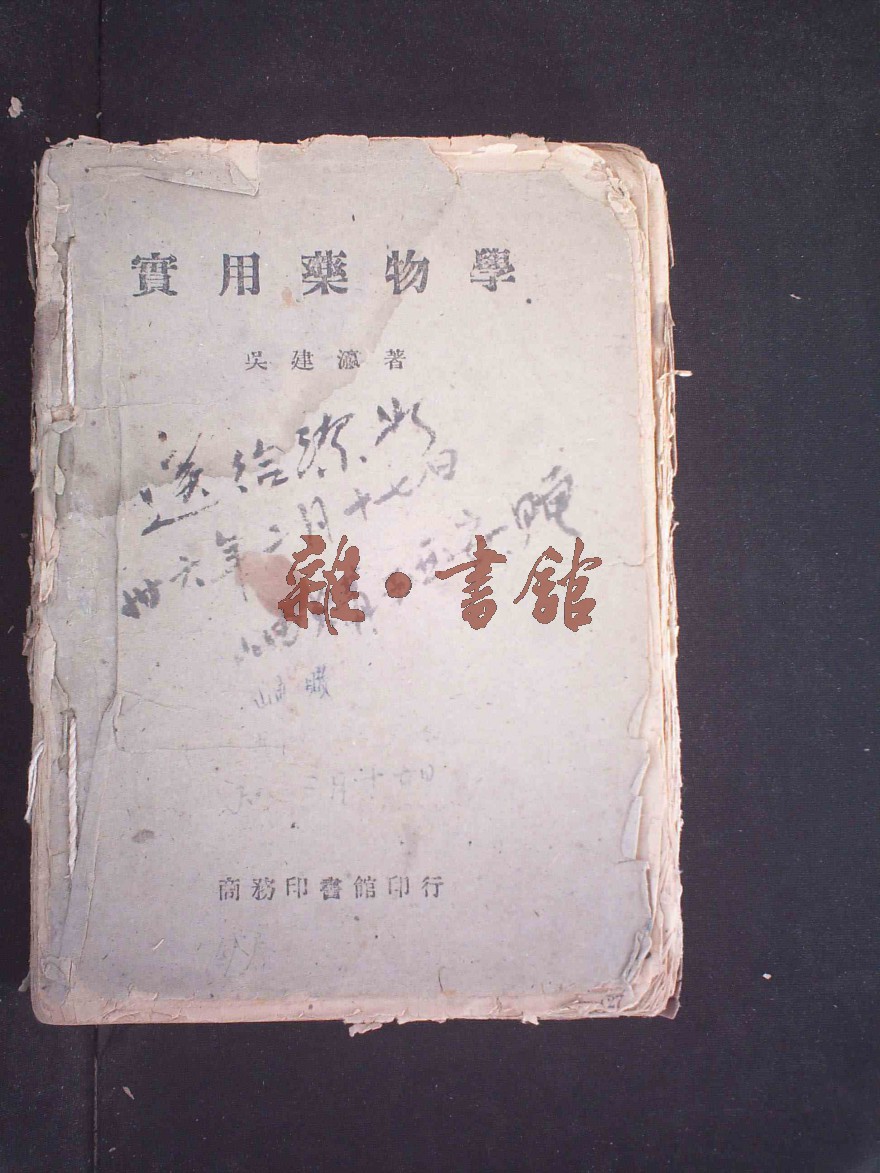 實用藥物學
吳建瀛著
送給
卅六年二月十七日
雜·書館
三月十七日
商務印書館印行